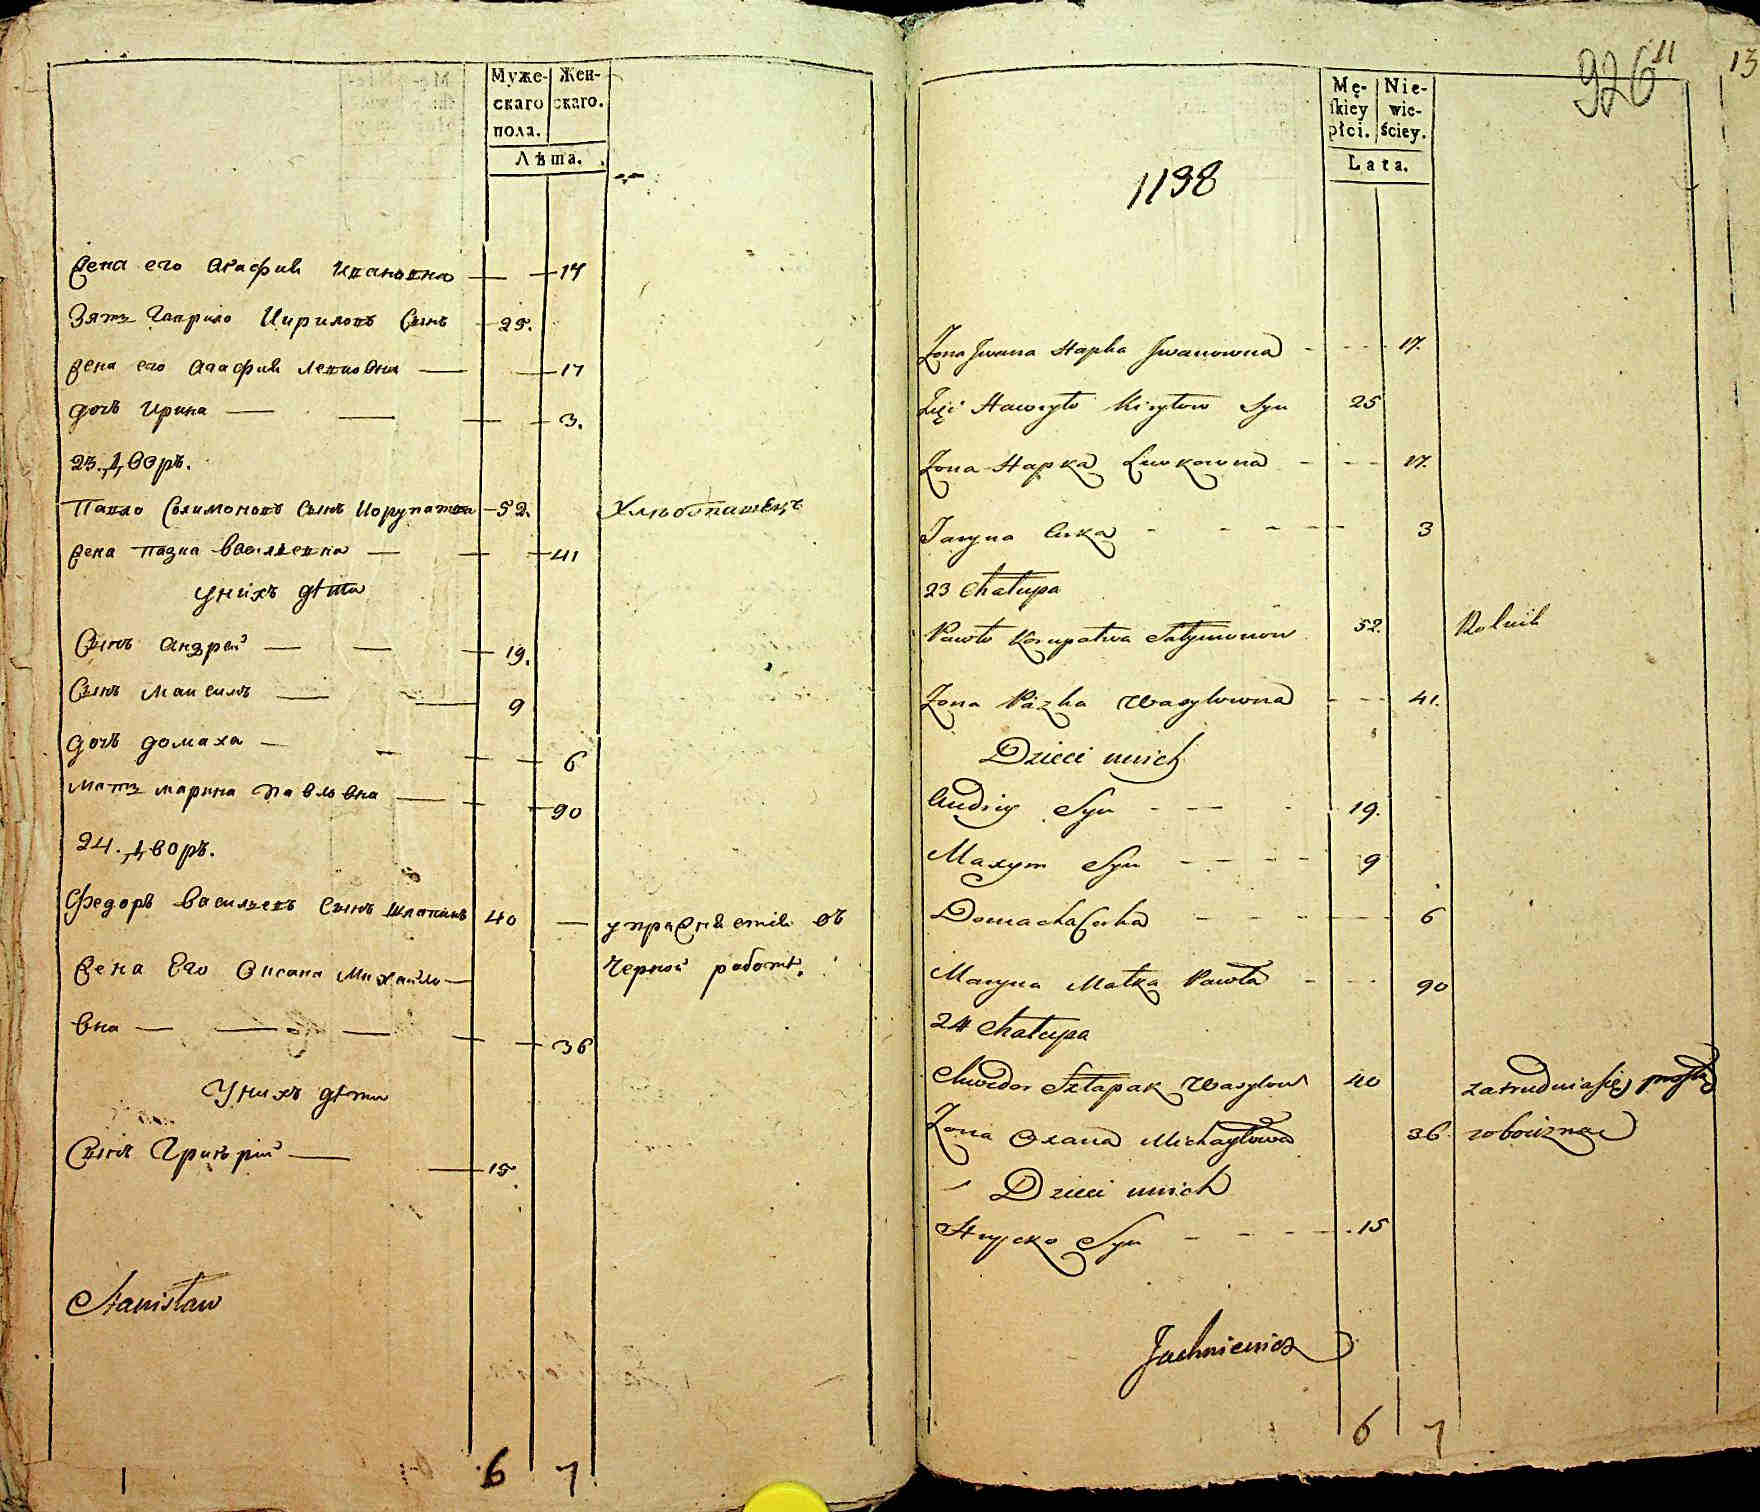 Муже- Жен-
скаго скаго.
пола.
Лѣта.
Жена его Агафия Ивановна 17
Зять Гаврило Кириловъ Сынъ 25.
жена его Агафия Левковна 17
дочь Ирина 3.
23. Дворъ.
Павло Солимоновъ Сынъ Корупатва 52. Хлѣбопашецъ
жена Пазка Василевна 41
У нихъ дѣти
Сынъ Андрей 19.
Сынъ Максимъ 9
дочь домаха 6
мать марина Павловна 90
24. Дворъ.
Федоръ Васильевъ Сынъ Шлапакъ 40 упражняется въ
Жена Его Оксана Михайло- Черной работѣ.
вна 36
У нихъ дѣти
Сынъ Григорій 15.
Stanisław
6 7
926 11 13
Mę- Nie-
ſkiey wie-
płci. ściey.
Lata.
1198
Żona Jwana Hapka Jwanowna 17.
Zięć Hawryło Kiryłow Syn 25
Żona Hapka Lewkowna 17.
Jaryna Curka 3
23 Chałupa
Pawło Korupatwa Sołymonow 52. Rolnik
Żona Pazka Wasylowna 41.
Dzieci u nich
Andriy Syn 19.
Maxym Syn 9
Domacha Corka 6
Maryna Matka Pawła 90
24 Chałupa
Chwedor Szłapak Wasylow 40 zatrudnia się prostą
Żona Oxana Michayłowa 36. robocizną
Dzieci u nich
Hryćko Syn 15
Juchniewicz
6 7